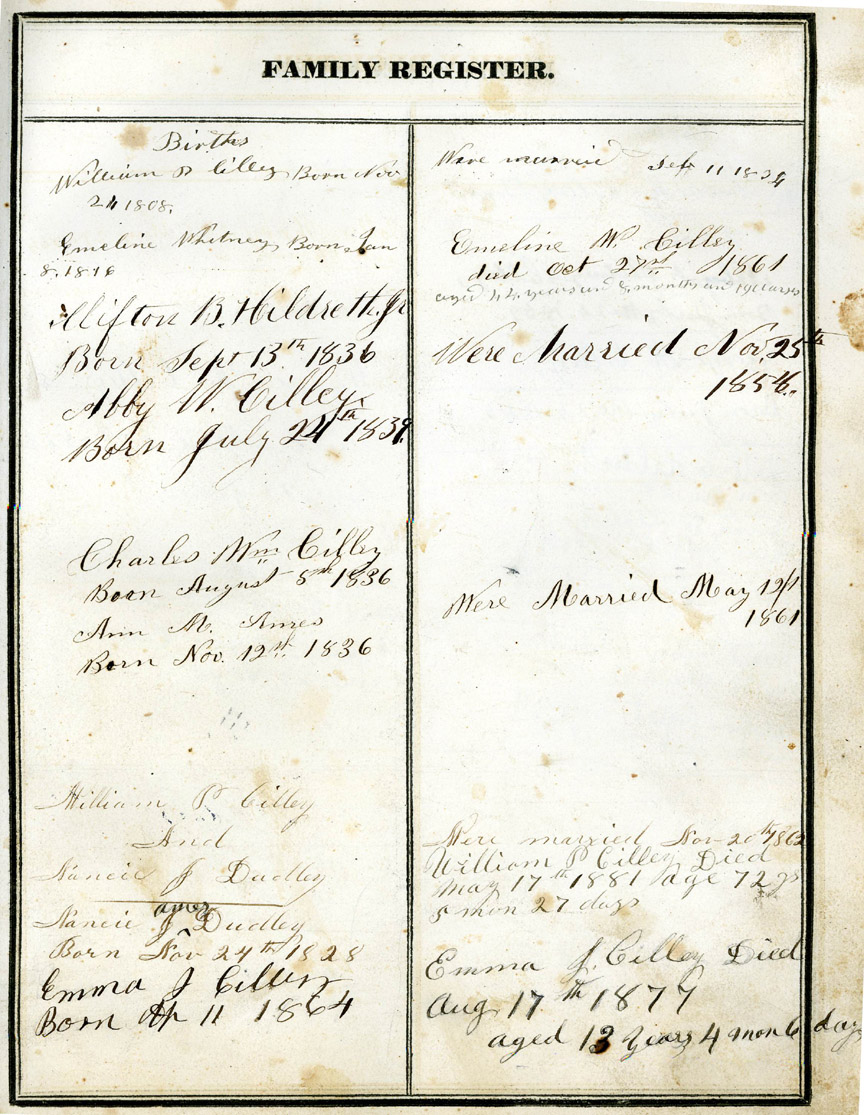 FAMILY REGISTER.
Births
William P Cilley Born Nov
24 1808.
Emeline Whitney Born Jan
8, 1816
Clifton B. Hildreth Jr
Born Sept 13th 1836
Abby W. Cilley
Born July 24th 1839.
Charles Wm Cilley
Born August 8th 1836
Ann M. Ames
Born Nov. 12th 1836
William P Cilley
And
Nancie J Dudley
ames
Nancie J Dudley
Born Nov 24th 1828
Emma J Cilley
Born Ap 11 1864
Were married Sep 11 1834
Emeline W. Cilley
died Oct 27th 1861
aged years and months and 19 days
Were Married Nov. 25th
1856.
Were Married May 12th
1861
Were married Nov 20th 1862
William P Cilley Died
May 17th 1881 age 72 ys
5 mon 27 days
Emma J. Cilley Died
Aug 17th 1877
aged 13 years 4 mon 6 days